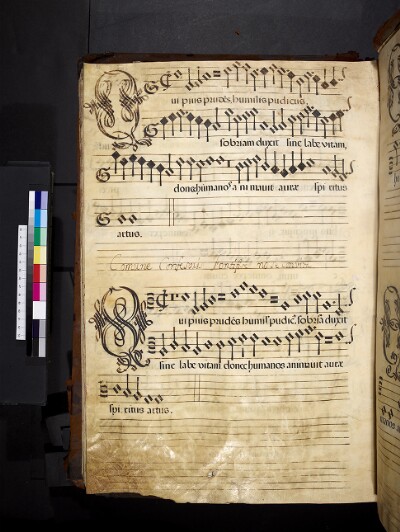 Qui pius prudēs, humilis pudicus,
sobriam duxit sine labe vitam,
donec humanos animavit auræ spiritus
artus.
Comune Confessor Pontifi
Qui pius prudēs humilis pudic, sobriā duxit
sine labe vitam donec humanos animavit auræ
spiritus artus.